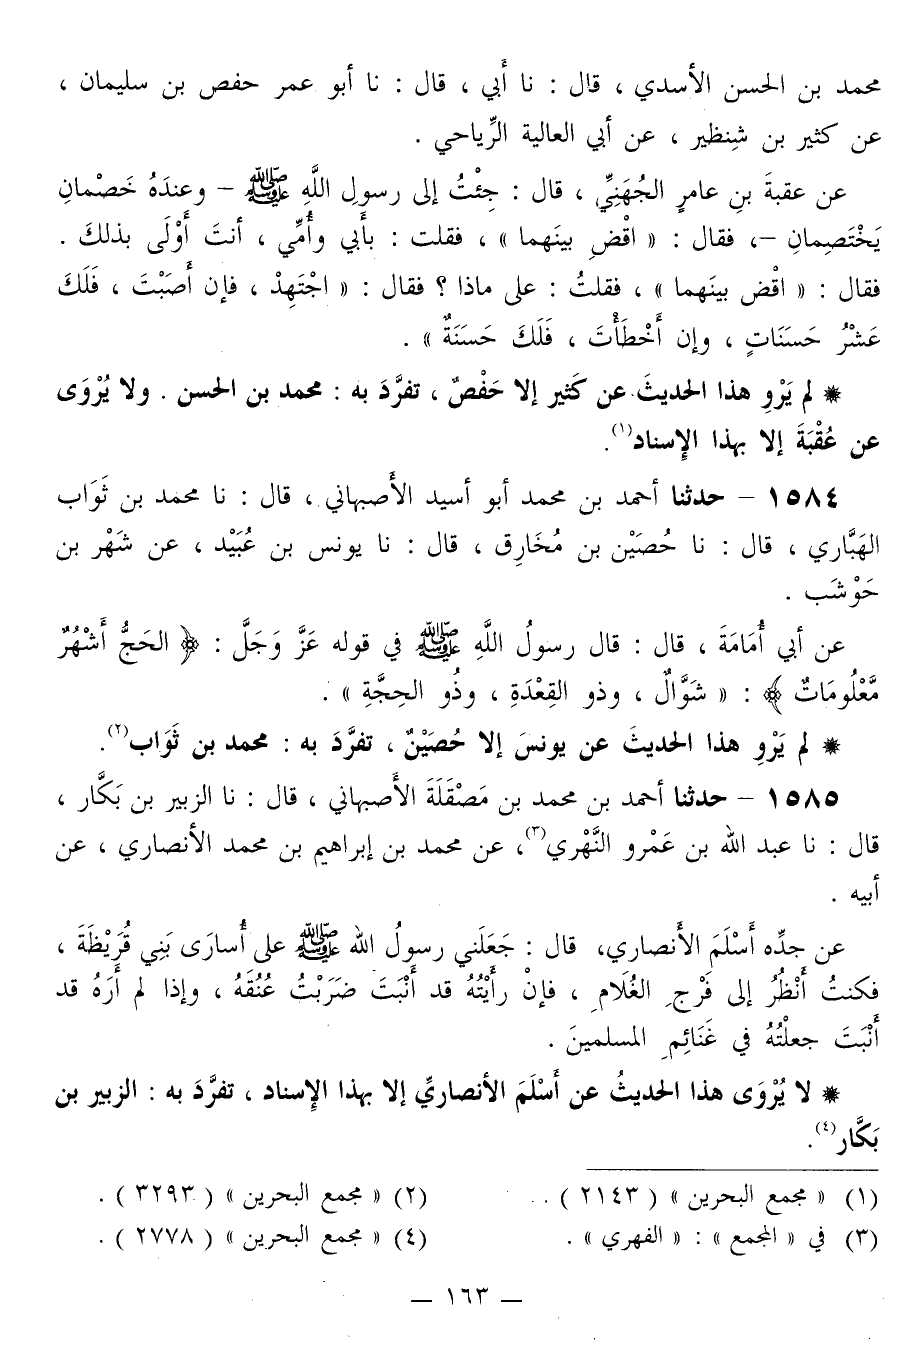 محمد بن الحسن الأسدي ، قال : نا أَبي ، قال : نا أبو عمر حفص بن سليمان ،
عن كثير بن شِنظير ، عن أبي العالية الرِّياحي .
عن عقبةَ بنِ عامرٍ الجُهَنِيِّ ، قال : جِئْتُ إلى رسولِ اللَّهِ ﷺ – وعندَهُ خَصْمانِ
يَخْتَصِمانِ –، فقال : « اقْضِ بينَهما » ، فقلت : بأَبي وأُمِّي ، أنتَ أَوْلَى بذلكَ .
فقال : « اقْضِ بينَهما » ، فقلتُ : على ماذا ؟ فقال : « اجْتَهِدْ ، فإن أَصَبْتَ ، فَلَكَ
عَشْرُ حَسَنَاتٍ ، وإن أَخْطَأْتَ ، فَلَكَ حَسَنَةٌ » .
* لم يَرْوِ هذا الحديثَ عن كَثيرٍ إلا حَفْصٌ ، تفرَّدَ به : محمد بن الحسن . ولا يُرْوَى
عن عُقْبَةَ إلا بهذا الإسناد(١).
١٥٨٤ – حدثنا أحمد بن محمد أبو أسيد الأَصبهاني ، قال : نا محمد بن ثَوَاب
الهَبَّاري ، قال : نا حُصَيْن بن مُخَارِق ، قال : نا يونس بن عُبَيْد ، عن شَهْر بن
حَوْشَب .
عن أبي أُمَامَةَ ، قال : قال رسولُ اللَّهِ ﷺ في قوله عَزَّ وَجَلَّ : ﴿ الحَجُّ أَشْهُرٌ
مَّعْلُومَاتٌ ﴾ : « شَوَّالٌ ، وذو القِعْدَةِ ، وذُو الحِجَّةِ » .
* لم يَرْوِ هذا الحديثَ عن يونسَ إلا حُصَيْنٌ ، تفرَّدَ به : محمد بن ثَوَاب(٢).
١٥٨٥ – حدثنا أحمد بن محمد بن مَصْقَلَةَ الأَصبهاني ، قال : نا الزبير بن بَكَّار ،
قال : نا عبد الله بن عَمْرو النَّهْري(٣)، عن محمد بن إبراهيم بن محمد الأنصاري ، عن
أبيه .
عن جدِّه أَسْلَمَ الأَنصاري، قال : جَعَلَني رسولُ الله ﷺ على أُسارَى بَنِي قُرَيْظَةَ ،
فكنتُ أَنْظُرُ إلى فَرْجِ الغُلَامِ ، فإنْ رأَيْتُهُ قد أَنْبَتَ ضَرَبْتُ عُنُقَهُ ، وإذا لم أَرَهُ قد
أَنْبَتَ جعلْتُهُ في غَنَائِمِ المسلمينَ .
* لا يُرْوَى هذا الحديثُ عن أَسْلَمَ الأنصاريِّ إلا بهذا الإسناد ، تفرَّدَ به : الزبير بن
بَكَّار(٤).
(١) « مجمع البحرين » ( ٢١٤٣ ) . (٢) « مجمع البحرين » ( ٣٢٩٣ ) .
(٣) في « المجمع » : « الفهري » . (٤) « مجمع البحرين » ( ٢٧٧٨ ) .
– ١٦٣ –